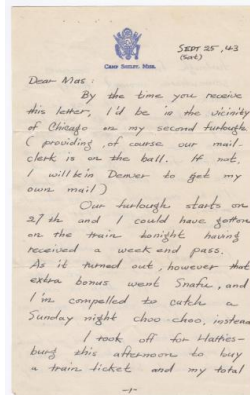 SEPT 25, 43
(Sat)
CAMP SHELBY, MISS.
Dear Mas:
By the time you receive
this letter, I'd be in the vicinity
of Chicago on my second furlough
(providing, of course our mail-
clerk is on the ball. If not,
I will be in Denver to get my
own mail)
Our furlough starts on
27th and I could have gotten
on the train tonight having
received a week end pass.
As it turned out, however that
extra bonus went Snafu, and
I'm compelled to catch a
Sunday night choo-choo, instead
I took off for Hatties-
burg this afternoon to buy
a train ticket and my total
-1-